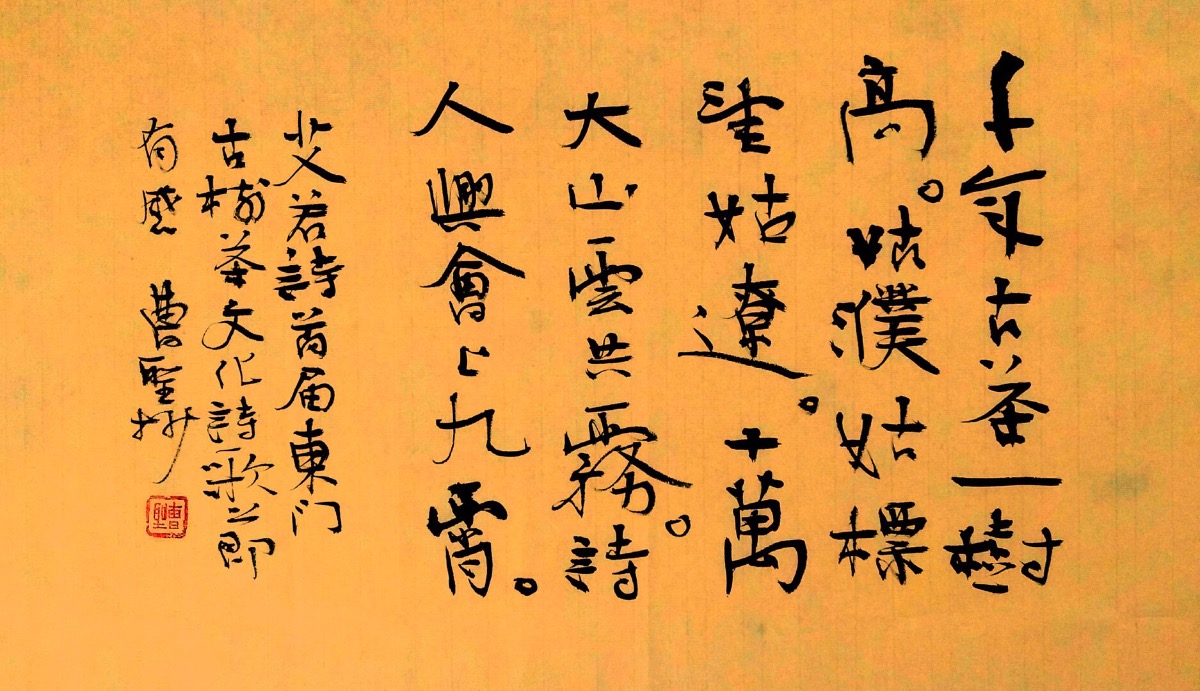 千年古茶一樹
高。姑濮姑標
望姑遼。十萬
大山雲共霧。詩
人興會上九霄。
艾君詩首届東门
古樹茶文化詩歌之即
有感 曹聖
曹聖